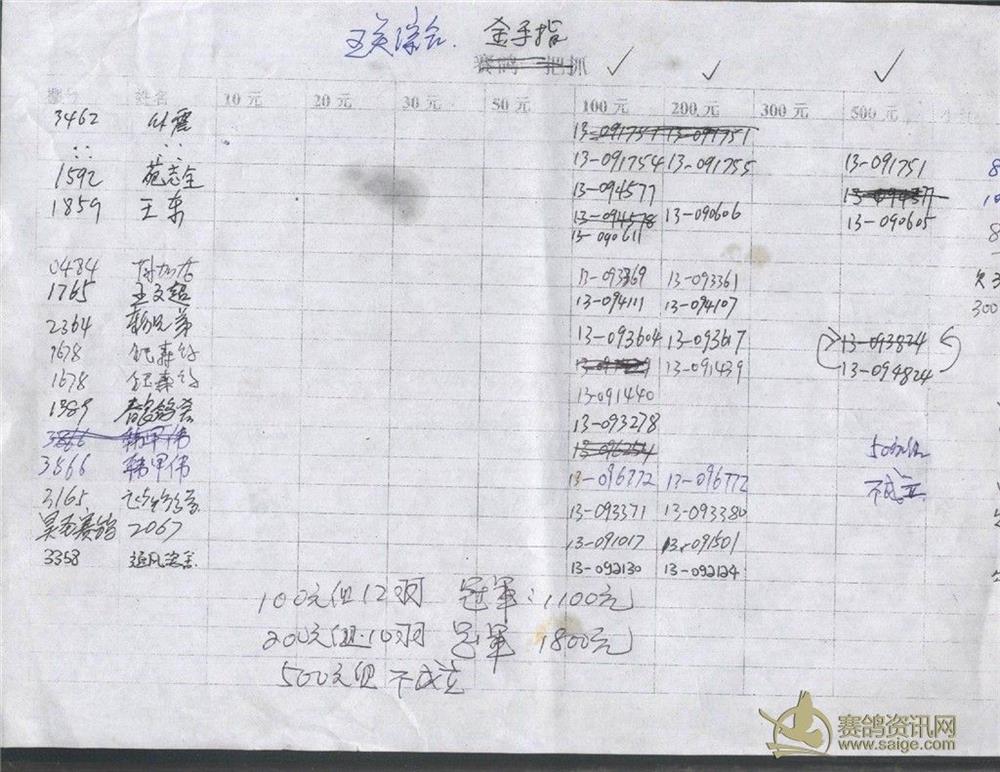 五关综合. 金手指
赛鸽一把抓
姓名 10元 20元 30元 50元 100元 200元 300元 500元
3462 13-091751 13-091751
13-091754 13-091755 13-091751
1592 苑志全 13-094577 13-094577
1859 王东 13-094578 13-090606 13-090605
13-090611
0484 13-093369 13-093361
1765 王文超 13-094111 13-094107
2364 兄弟 13-093604 13-093617 13-093824
1678 13-091439 13-094824
1678 13-091440
1389 13-093278
3866 韩甲伟 500元组
3866 韩甲伟 13-096772 13-096772 不成立
3165 13-093371 13-093380
赛鸽 2067 13-091017 13-091501
3358 追风 13-092130 13-092124
100元组12羽 冠军:1100元
200元组10羽 冠军 1800元
500元组不成立
赛鸽资讯网
www.saige.com